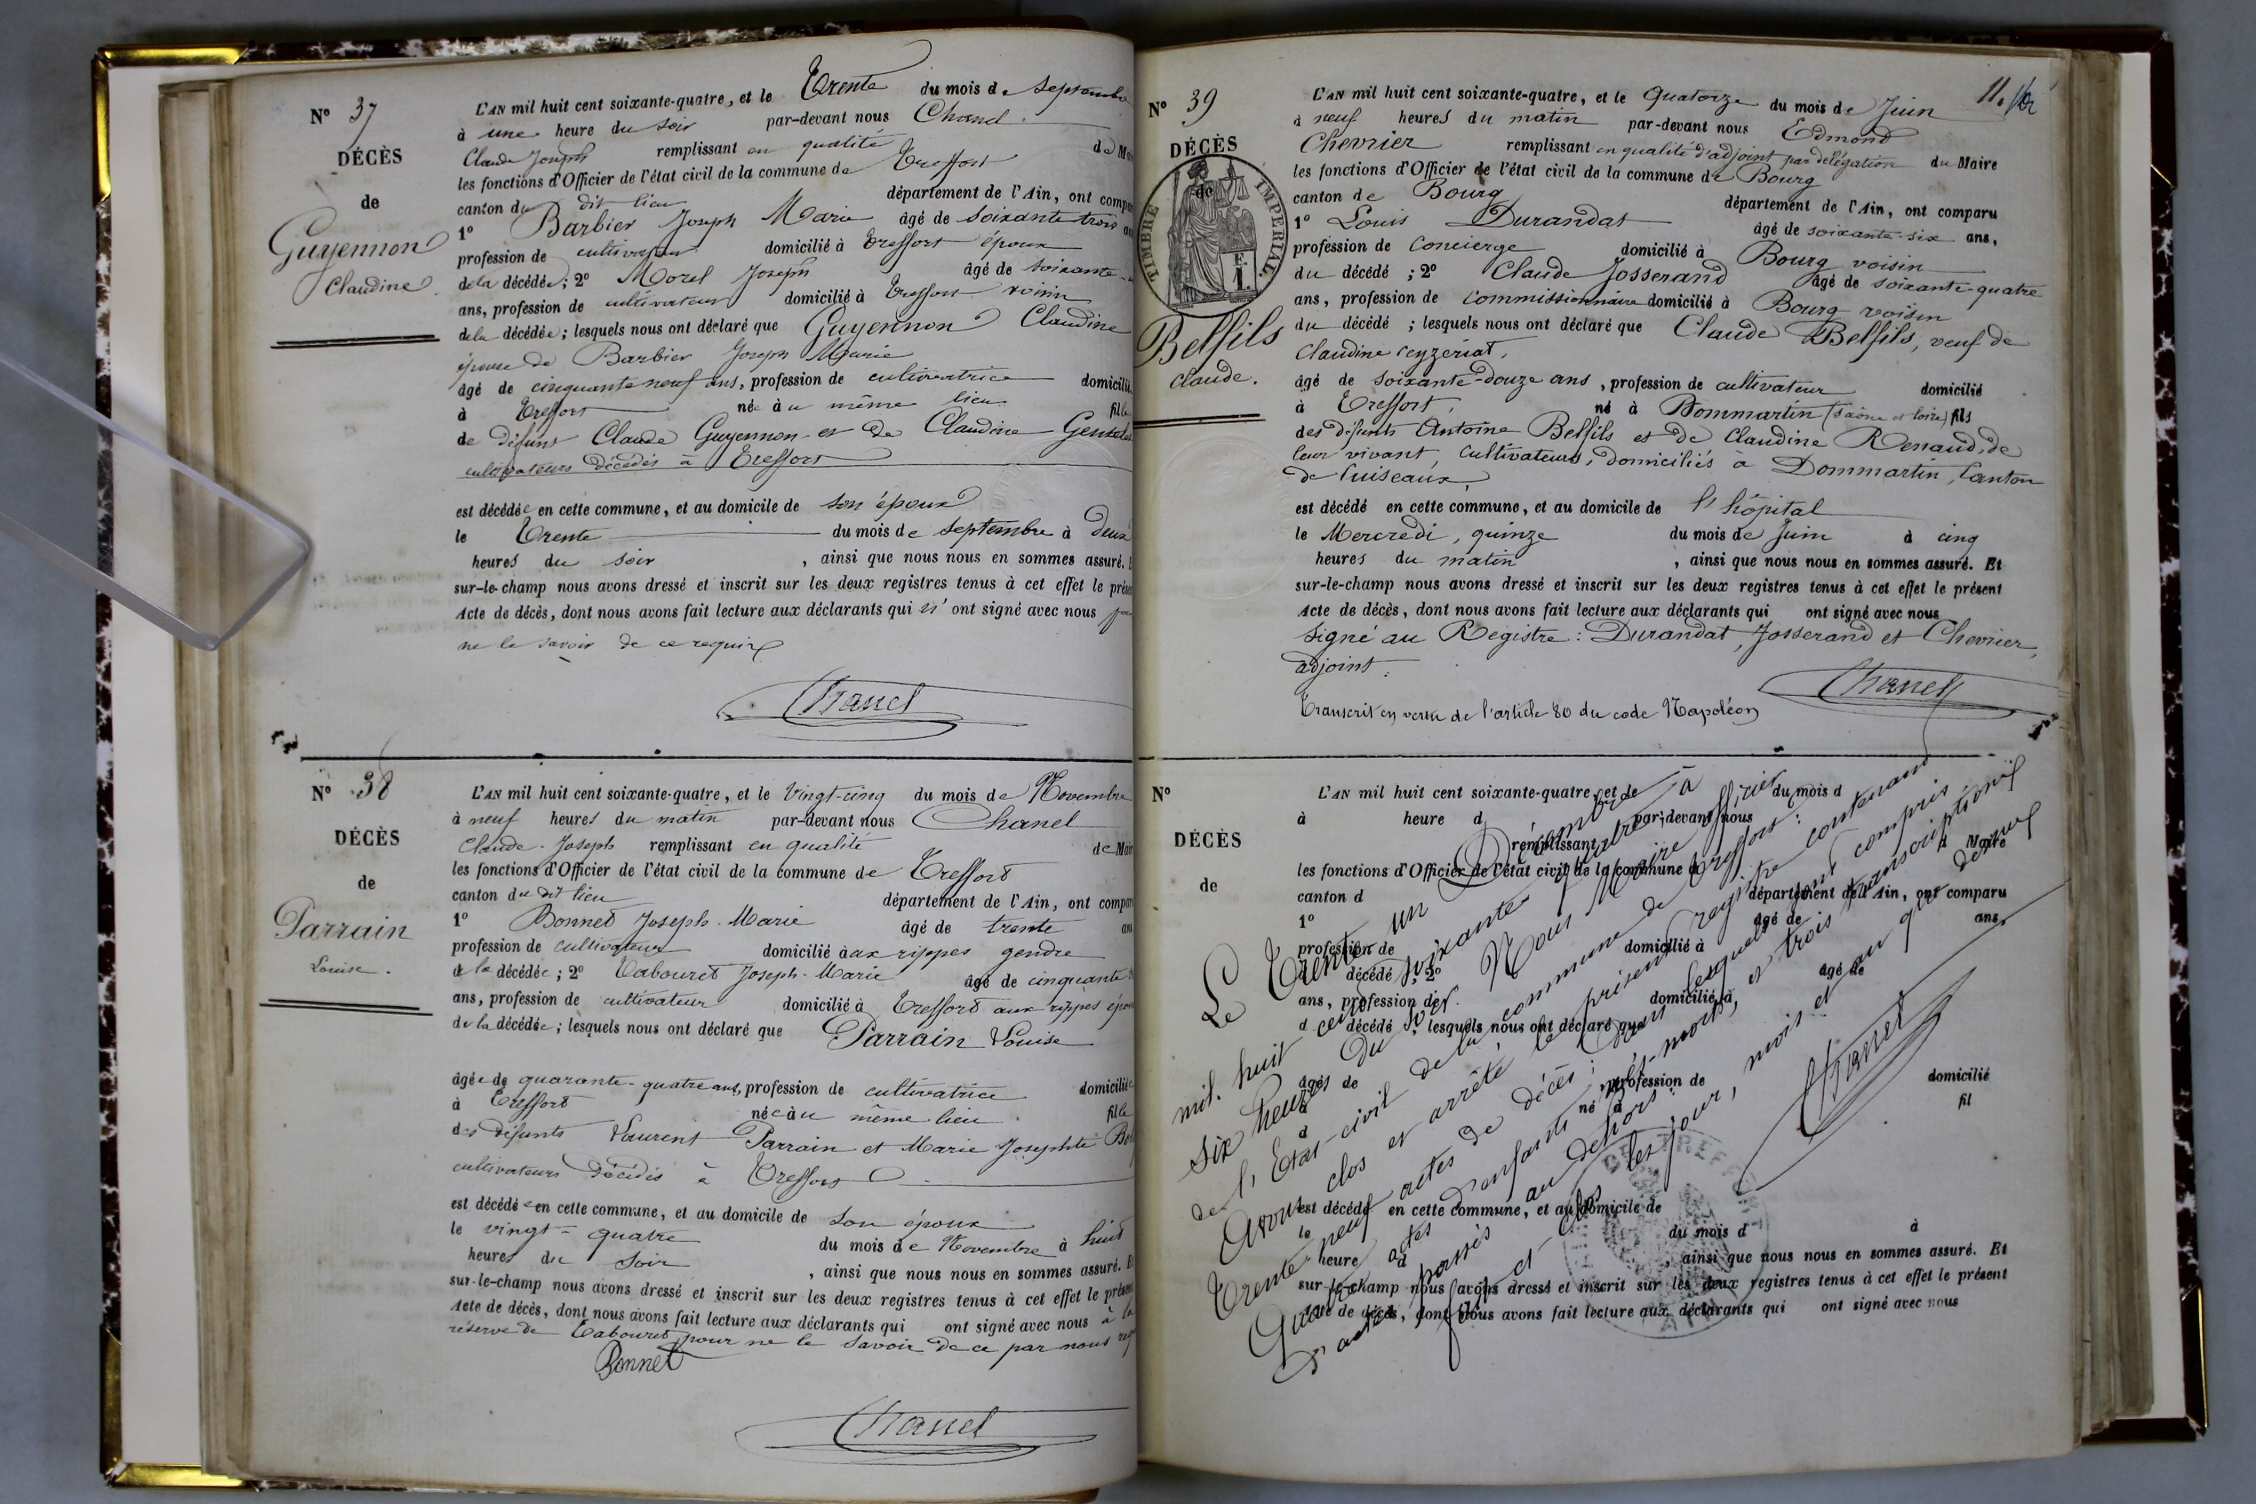 N° 37
DÉCÈS
de
Guyennon
Claudine
L'AN mil huit cent soixante-quatre, et le Trente du mois de Septembre
à une heure du soir par-devant nous Chanel
Claude Joseph remplissant en qualité de Maire
les fonctions d'Officier de l'état civil de la commune de Treffort
canton du dit lieu département de l'Ain, ont comparu
1° Barbier Joseph Marie âgé de soixante trois ans
profession de cultivateur domicilié à Treffort époux
de la décédée; 2° Morel Joseph âgé de soixante
ans, profession de cultivateur domicilié à Treffort voisin
de la décédée; lesquels nous ont déclaré que Guyennon Claudine
épouse de Barbier Joseph Marie
âgé de cinquante neuf ans, profession de cultivatrice domiciliée
à Treffort née au même lieu fille
de défunt Claude Guyennon et de Claudine
cultivateurs décédés à Treffort
est décédée en cette commune, et au domicile de son époux
le Trente du mois de septembre à deux
heures du soir, ainsi que nous nous en sommes assuré. Et
sur-le-champ nous avons dressé et inscrit sur les deux registres tenus à cet effet le présent
Acte de décès, dont nous avons fait lecture aux déclarants qui n'ont signé avec nous pour
ne le savoir de ce requis
Chanel
N° 38
DÉCÈS
de
Parrain
Louise.
L'AN mil huit cent soixante-quatre, et le Vingt-cinq du mois de Novembre
à neuf heures du matin par-devant nous Chanel
Claude-Joseph remplissant en qualité de Maire
les fonctions d'Officier de l'état civil de la commune de Treffort
canton du dit lieu département de l'Ain, ont comparu
1° Bonnet Joseph-Marie âgé de trente ans
profession de cultivateur domicilié à aux rippes gendre
de la décédée; 2° Tabouret Joseph-Marie âgé de cinquante
ans, profession de cultivateur domicilié à Treffort aux rippes époux
de la décédée; lesquels nous ont déclaré que Parrain Louise
âgée de quarante-quatre ans, profession de cultivatrice domiciliée
à Treffort née au même lieu fille
des défunts Laurent Parrain et Marie Josephte
cultivateurs décédés à Treffort
est décédée en cette commune, et au domicile de son époux
le vingt-quatre du mois de Novembre à huit
heures du soir, ainsi que nous nous en sommes assuré. Et
sur-le-champ nous avons dressé et inscrit sur les deux registres tenus à cet effet le présent
Acte de décès, dont nous avons fait lecture aux déclarants qui ont signé avec nous à la
réserve de Tabouret pour ne le savoir de ce par nous
Bonnet
Chanel
11.
N° 39
DÉCÈS
de
TIMBRE IMPÉRIAL.
F.
1.
Belfils
Claude.
L'AN mil huit cent soixante-quatre, et le Quatorze du mois de Juin
à neuf heures du matin par-devant nous Edmond
Chevrier remplissant en qualité d'adjoint par délégation du Maire
les fonctions d'Officier de l'état civil de la commune de Bourg
canton de Bourg département de l'Ain, ont comparu
1° Louis Durandat âgé de soixante-six ans,
profession de concierge domicilié à Bourg voisin
du décédé; 2° Claude Josserand âgé de soixante-quatre
ans, profession de commissionnaire domicilié à Bourg voisin
du décédé; lesquels nous ont déclaré que Claude Belfils, veuf de
Claudine Ceyzériat,
âgé de soixante-douze ans, profession de cultivateur domicilié
à Treffort, né à Dommartin (Saône et Loire) fils
des défunts Antoine Belfils et de Claudine Renaud, de
leur vivant, cultivateurs, domiciliés à Dommartin, Canton
de Cuiseaux,
est décédé en cette commune, et au domicile de l'hôpital
le Mercredi, quinze du mois de Juin à cinq
heures du matin, ainsi que nous nous en sommes assuré. Et
sur-le-champ nous avons dressé et inscrit sur les deux registres tenus à cet effet le présent
Acte de décès, dont nous avons fait lecture aux déclarants qui ont signé avec nous
signé au Registre: Durandat, Josserand et Chevrier,
adjoint.
Chanel
Transcrit en vertu de l'article 80 du code Napoléon
N°
DÉCÈS
de
L'AN mil huit cent soixante-quatre, et le du mois d
à heure d par-devant nous
remplissant d Maire
les fonctions d'Officier de l'état civil de la commune d
canton d département de l'Ain, ont comparu
1° âgé de ans,
profession de domicilié à
d décédé; 2° âgé de
ans, profession de domicilié à
d décédé; lesquels nous ont déclaré que
âgé de profession de domicilié
à né à fil
d
est décédé en cette commune, et au domicile de
le du mois d à
heure d, ainsi que nous nous en sommes assuré. Et
sur-le-champ nous avons dressé et inscrit sur les deux registres tenus à cet effet le présent
Acte de décès, dont nous avons fait lecture aux déclarants qui ont signé avec nous
Le Trente un Décembre
mil huit cent soixante quatre à
six heures du soir. Nous Maire officier
de l'Etat-civil de la commune de Treffort:
Avons clos et arrêté le présent registre contenant
Trente neuf actes de décès; Dans lesquels sont compris
Quatre actes d'enfants nés-morts, et trois transcriptions
d'actes passés au dehors.
fait et clos les jour, mois et an que dessus
Chanel